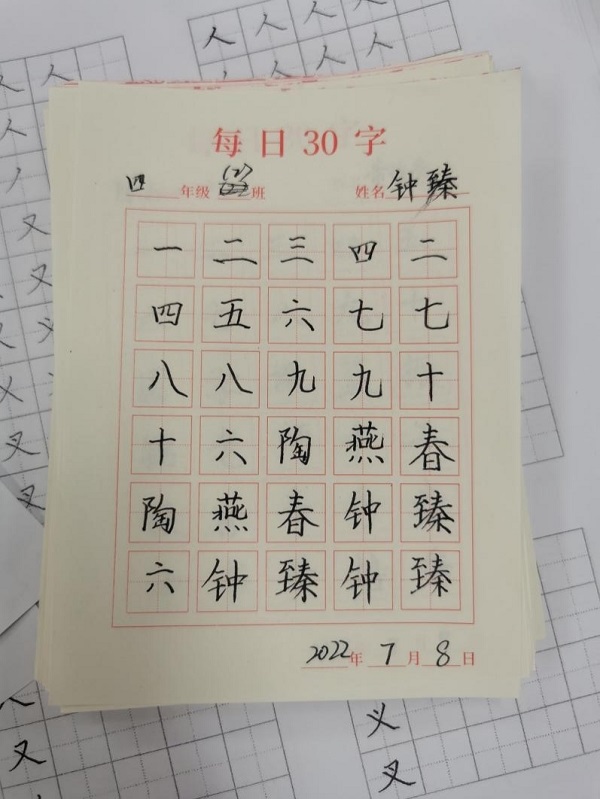 人 人 人
人 人 人 人 人
每日30字
四年级(2)班 姓名钟臻
一二三四二
四五六七七
八八九九十
十六陶燕春
陶燕春钟臻
六钟臻钟臻
2022年7月8日
人
又
又
又
叉
叉
人
又
义
叉